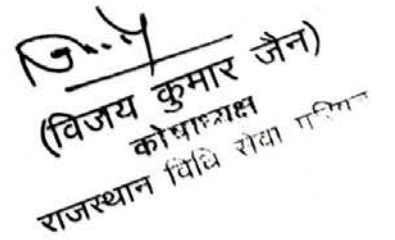 (विजय कुमार जैन)
कोषाध्यक्ष
राजस्थान विधि सेवा